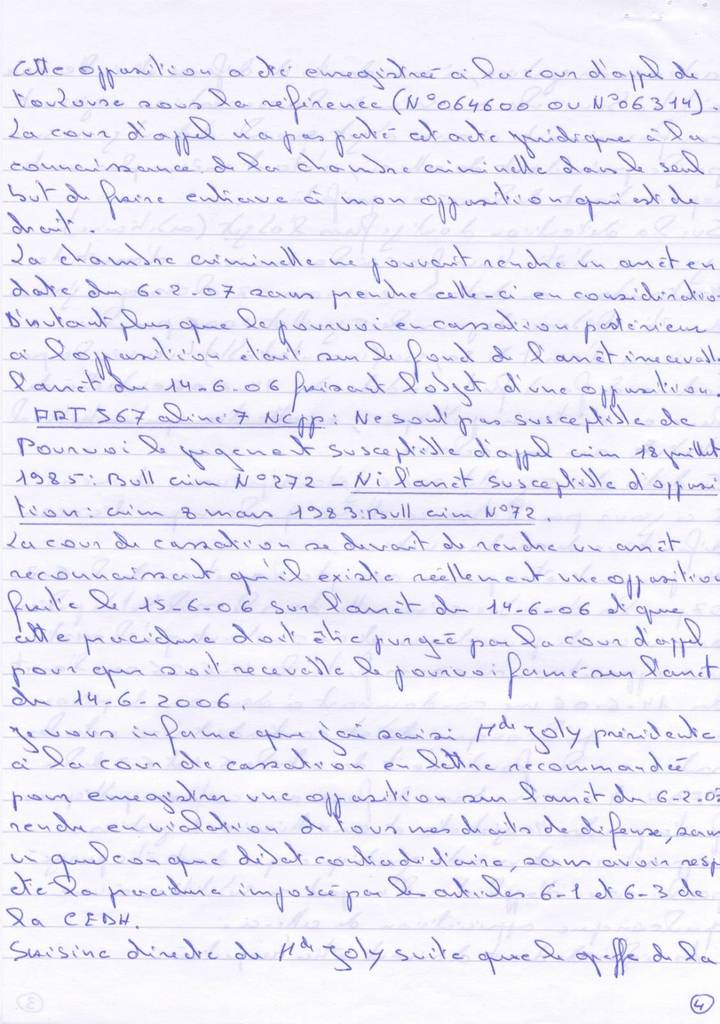 Cette opposition a été enregistreé à la cour d'appel de
toulouse sous la référence (N°064600 ou N°06314).
La cour d'appel n'a pas porté cet acte juridique à la
connaissance de la chambre criminelle dans le seul
but de faire entrave à mon opposition qui est de
droit.
La chambre criminelle ne pouvait rendre un arrêt en
date du 6-2-07 sans prendre celle-ci en considératio
D'autant plus que le pourvoi en cassation postérieur
à l'opposition était sur le fond de l'arrêt irrecevable
l'arrêt du 14-6-06 faisant l'objet d'une opposition.
ART 567 aline 7 NCpp: Ne sont pas susceptible de
Pourvoi le jugement susceptible d'appel crim 18 juillet
1985: Bull crim N°272 - Ni l'arrêt susceptible d'opposi
tion: crim 8 mars 1983: Bull crim N°72.
La cour de cassation se devait de rendre un arrêt
reconnaissant qu'il existe réellement une opposition
faite le 15-6-06 sur l'arrêt du 14-6-06 et que
cette procédure doit être purgeé par la cour d'appel
pour que soit recevable le pourvoi formé sur l'arrêt
du 14-6-2006.
Je vous informe que j'ai saisi Mde Joly présidente
à la cour de cassation en lettre recommandeé
pour enregistrer une opposition sur l'arrêt du 6-2-07
rendu en violation de tous nos droits de défense, sans
un quelconque débat contradictoire, sans avoir resp
cté la procédure imposé par les articles 6-1 et 6-3 de
la CEDH.
Saisine directe de Mde Joly suite que le greffe de la
4